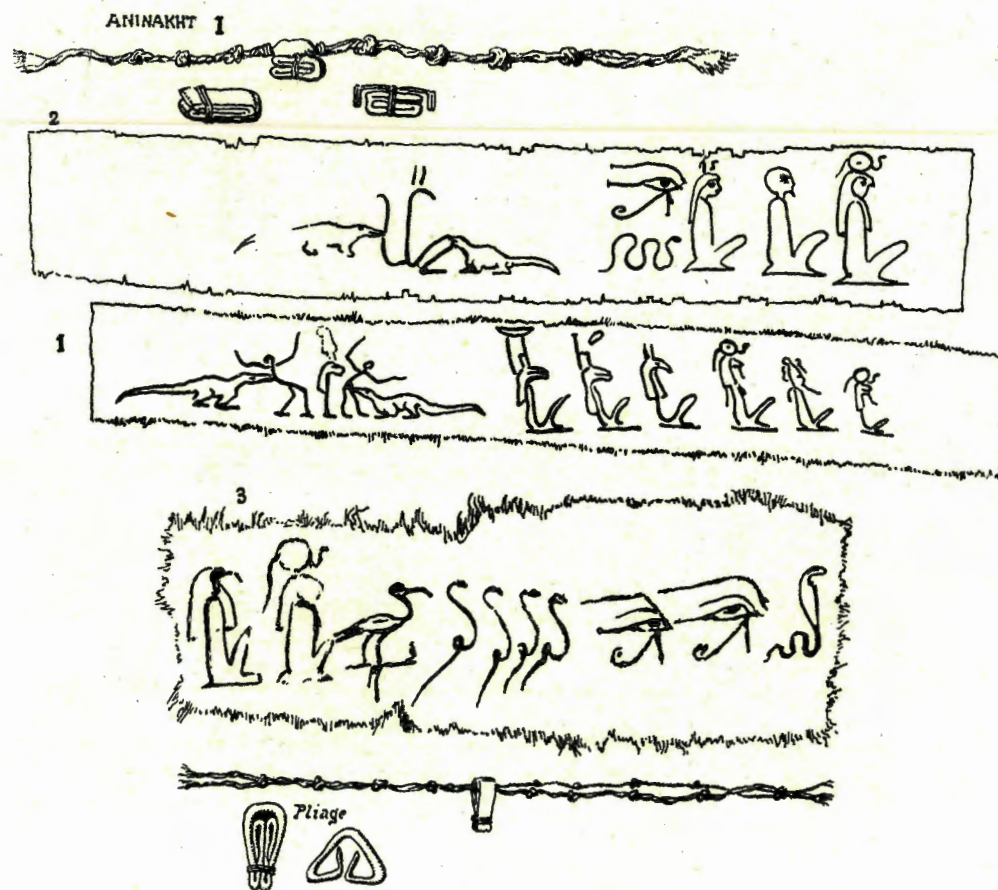 ANINAKHT I
2
I
3
Pliage